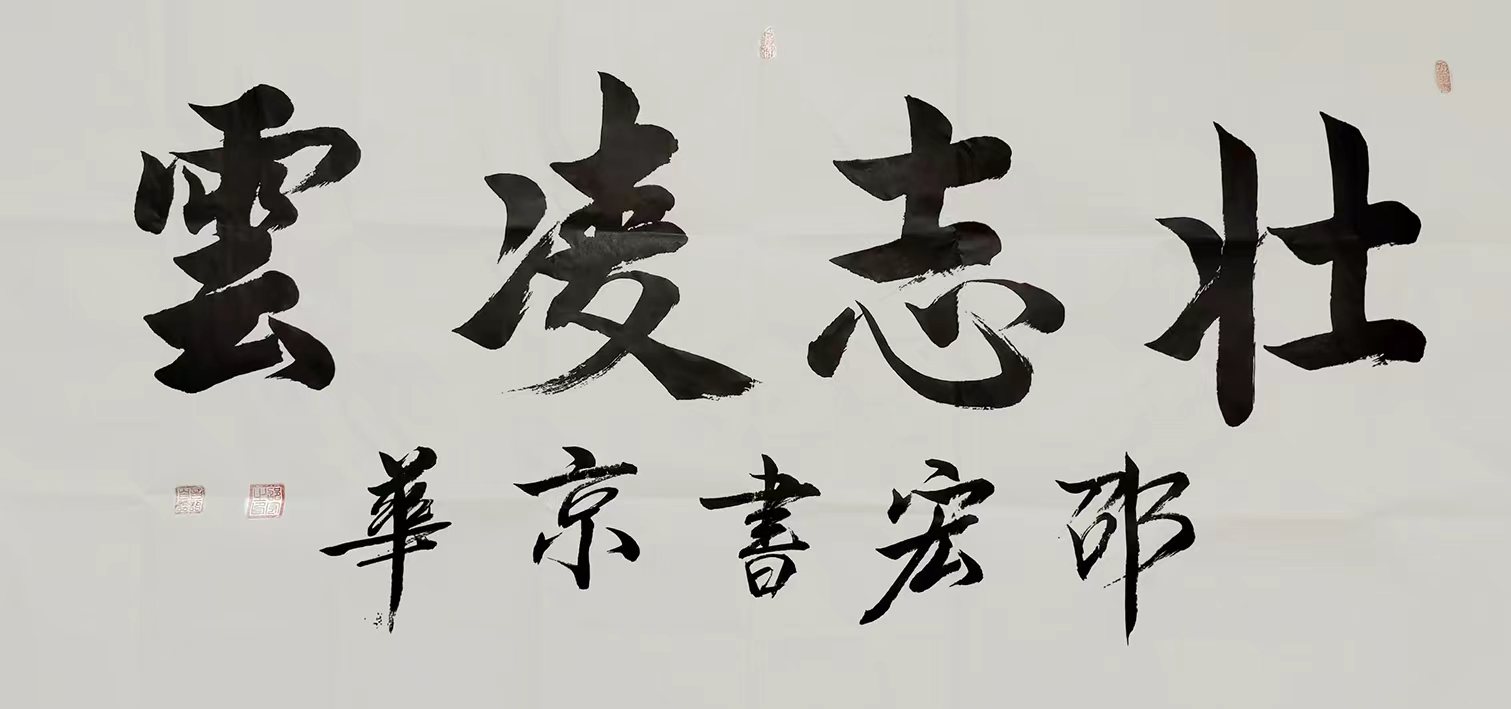 壯志凌雲
邵宏書京華